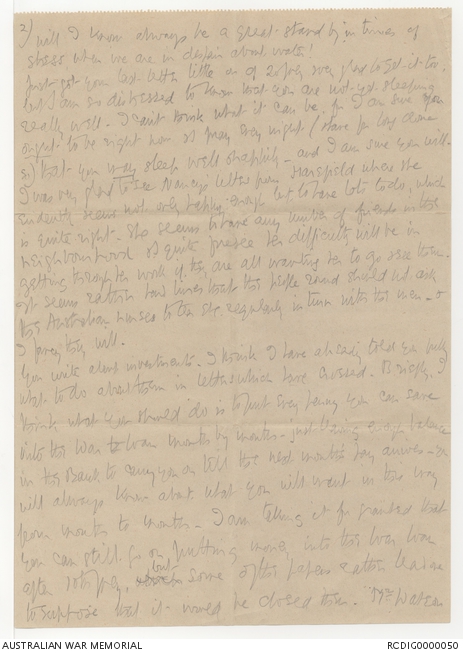 2) will I know always be a great stand by in times of
stress when we are in despair about water!
Just got your last letter little on of 20 July very glad to get it too
but I am so distressed to know that you are not yet sleeping
really well. I can't think what it can be for I am sure you
ought to be right now. I pray every night (I have for long done
so) that you may sleep well & happily - and I am sure you will.
I was very glad to see Nancy's letter from Mansfield where she
evidently seems not only happy enough but to have lots to do, which
is quite right. She seems to have any number of friends in this
neighbourhood & I quite foresee her difficulty will be in
getting through her work if they are all wanting her to go & see them.
It seems rather hard lines that the people round should not ask
the Australian nurses to tea etc. regularly in turn with the men - &
I fancy they will.
You write about investments. I think I have already told you
what to do about them in letters which have crossed. Briefly, I
think what you should do is to put every penny you can save
into the War Loan month by month - just leaving enough balance
in the Bank to carry you on till the next month's pay arrives - you
will always know about what you will want in this way
from month to month - I am taking it for granted that
you can still go on putting money into the War Loan
after 10th July, but some of the papers rather lead me
to suppose that it would be closed then. Watson